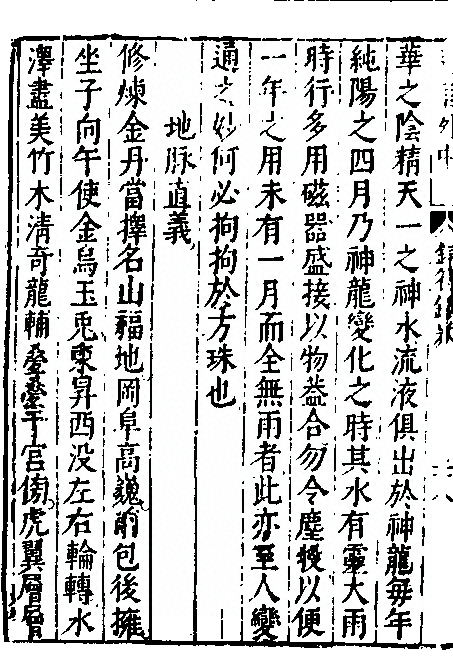 華之陰精天一之神水流液俱出於神龍每年
純陽之四月乃神龍變化之時其水有靈大雨
時行多用磁器盛接以物葢合勿令塵𡏖以便
一年之用未有一月而全無雨者此亦至人變
通之妙何必拘拘於方珠也
地脉直義
修煉金丹當擇名山福地岡阜高巍前包後擁
坐子向午使金烏玉兎東昇西没左右輪轉水
澤盡美竹木清奇龍輔疊疊于宮傍虎翼層層